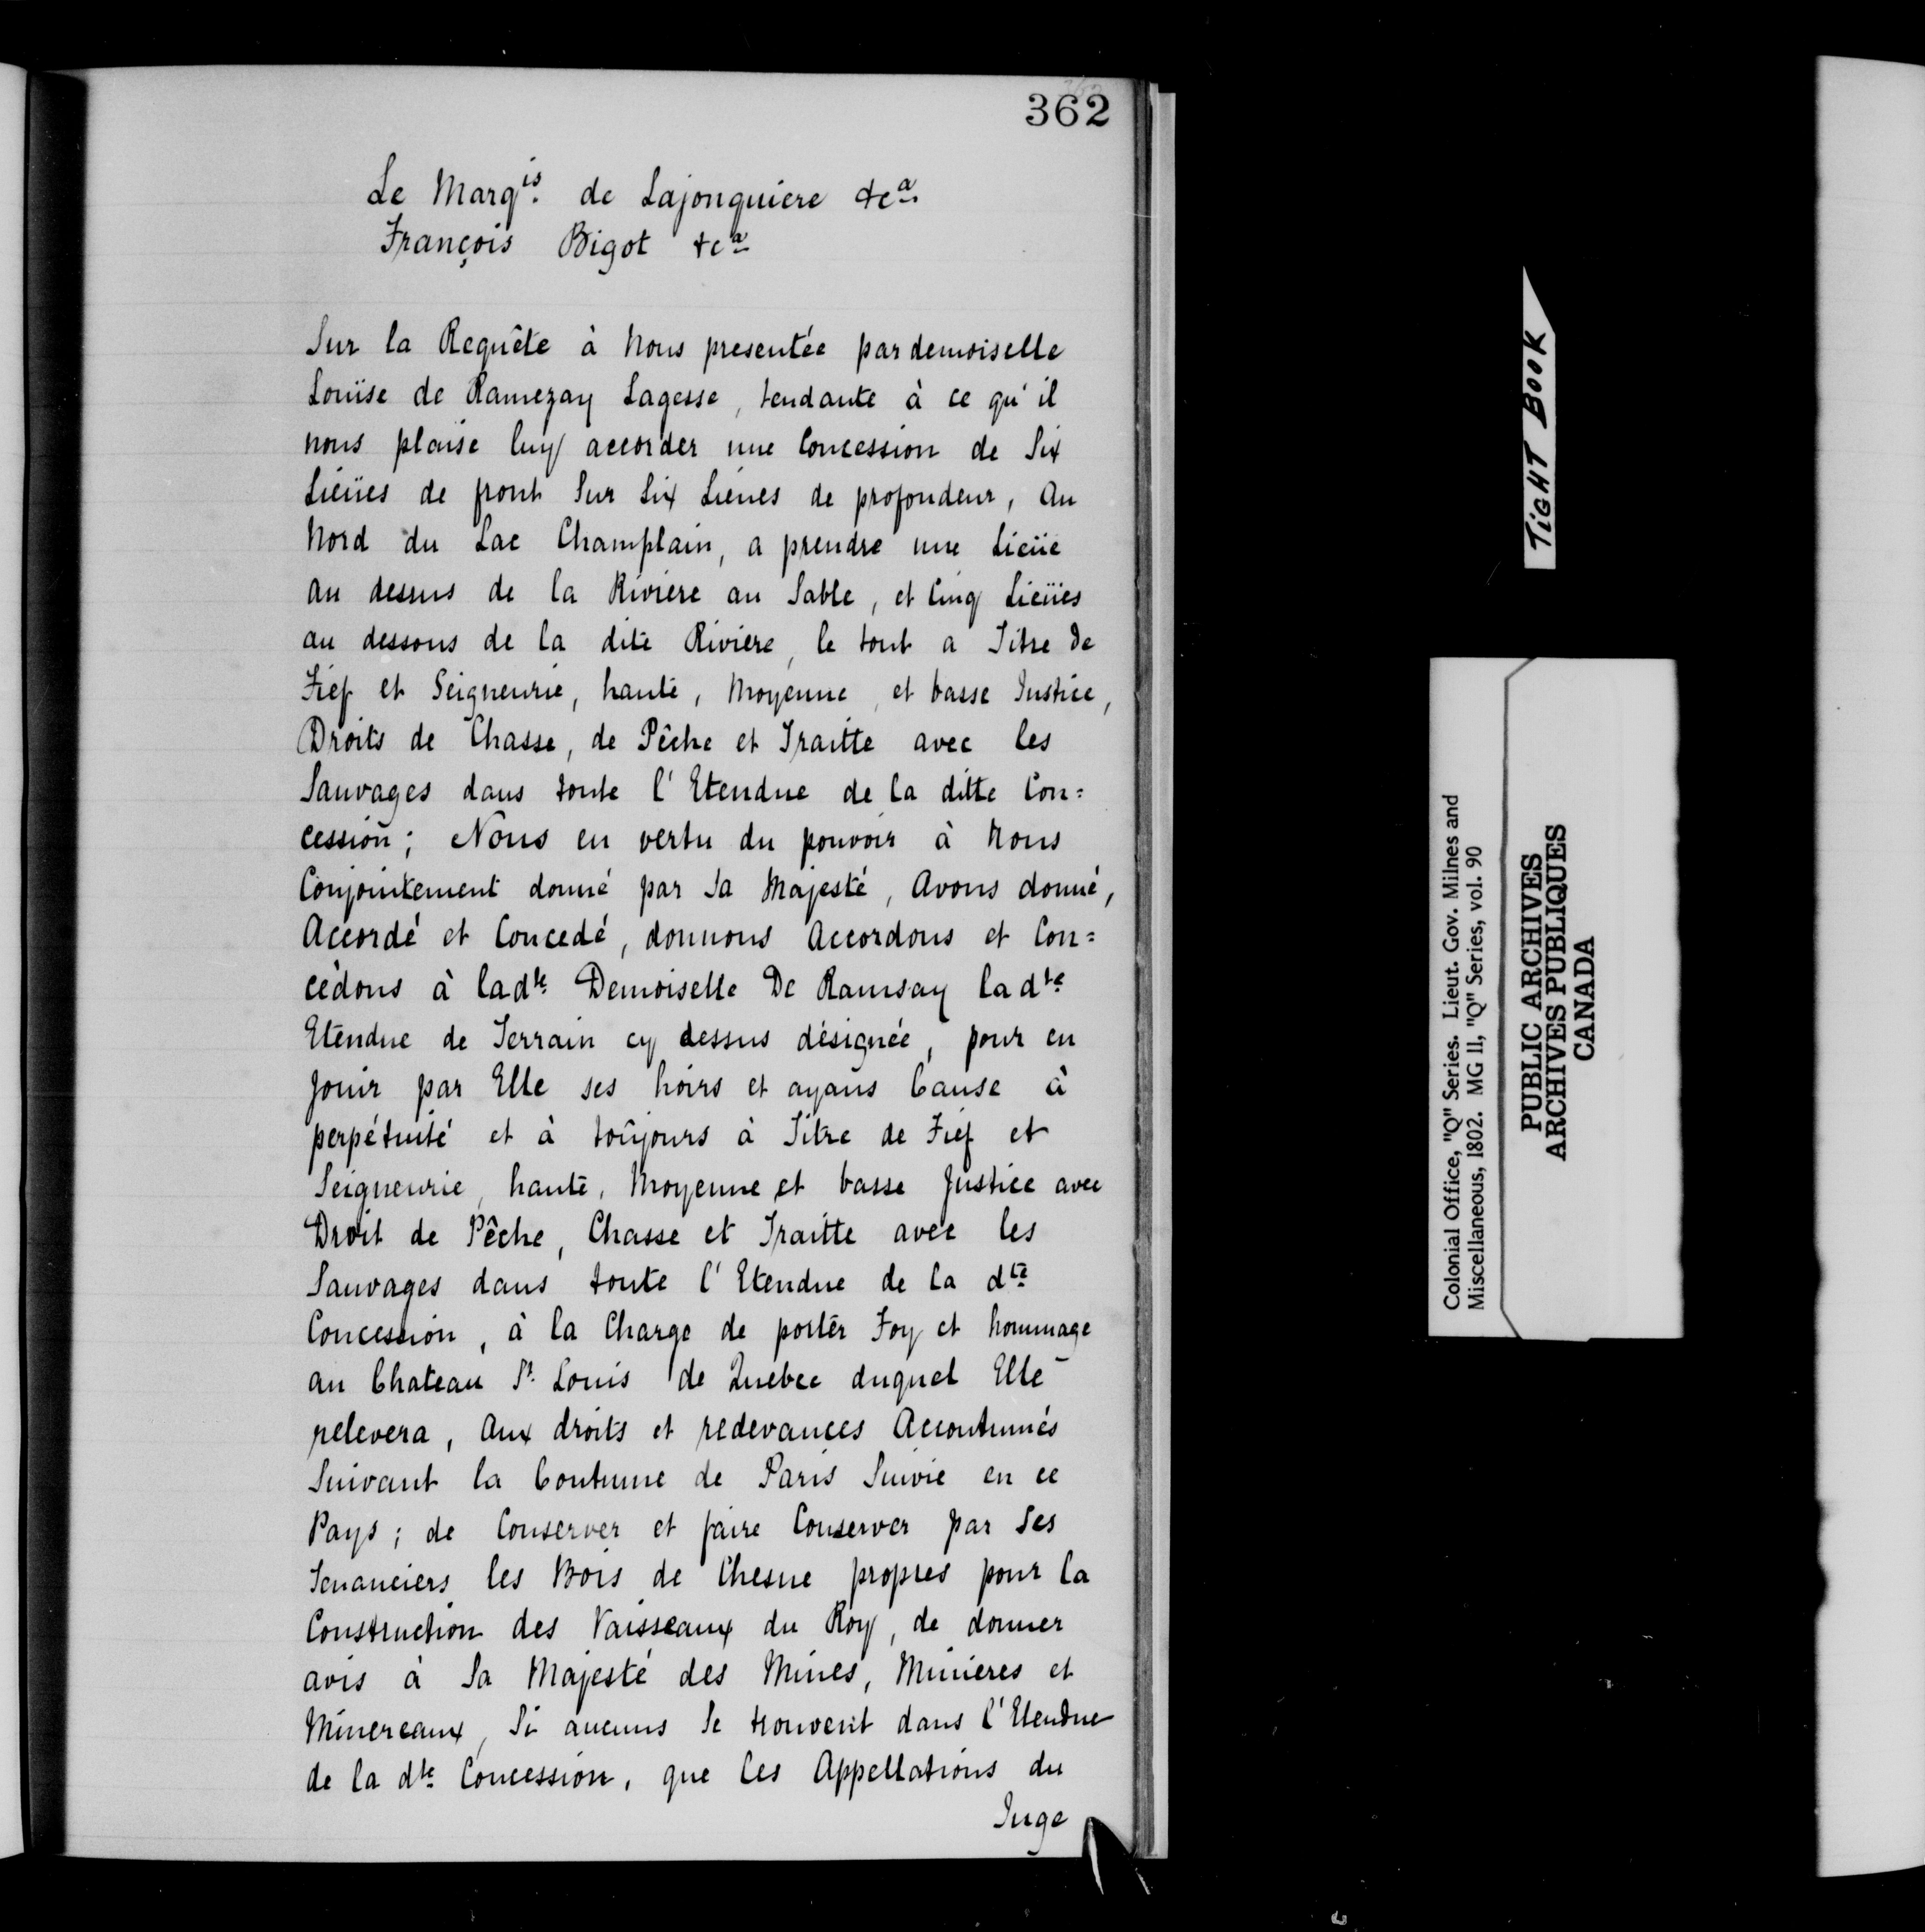 362
Le Marq.is de Lajonquiere &ca
François Bigot &ca
Sur la Requête à Nous presentée par demoiselle
Louise de Ramezay Lagesse, tendante à ce qu'il
nous plaise luy accorder une Concession de Six
Lieües de front Sur Six Lieues de profondeur, Au
Nord du Lac Champlain, a prendre une Lieüe
au dessus de la Riviere au Sable, et Cinq Lieües
au dessous de la dite Riviere, le tout a Titre de
Fief et Seigneurie, haute, Moyenne, et basse Justice,
Droits de Chasse, de Pêche et Traitte avec les
Sauvages dans toute l'Etendue de la ditte Con=
cession; Nous en vertu du pouvoir à Nous
Conjointement donné par Sa Majesté, Avons donné,
Accordé et Concedé, donnons Accordons et Con=
cèdons à lad.te Demoiselle De Ramsay lad.te
Etendue de Terrain cy dessus désignée, pour en
Jouir par Elle ses hoirs et ayans Cause à
perpétuité et à toûjours à Titre de Fief et
Seigneurie, haute, Moyenne et basse Justice avec
Droit de Pêche, Chasse et Traitte avec les
Sauvages dans toute l'Etendue de la d.te
Concession, à la Charge de porter Foy et hommage
au Chateau St. Louis de Quebec duquel Elle
relevera, Aux droits et redevances Accoutumés
Suivant la Coutume de Paris Suivie en ce
Pays; de Conserver et faire Conserver par Ses
Tenanciers les Bois de Chesne propres pour la
Construction des Vaisseaux du Roy, de donner
avis à Sa Majesté des Mines, Minieres et
Minereaux, Si aucuns Se trouvent dans l'Etendue
de la d.te Concession, que les Appellations du
Juge
TIGHT BOOK
Colonial Office, "Q" Series. Lieut. Gov. Milnes and
Miscellaneous, 1802. MG 11, "Q" Series, vol. 90
PUBLIC ARCHIVES
ARCHIVES PUBLIQUES
CANADA